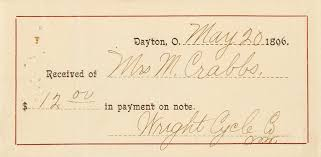 Dayton, O. May 20 1896.
Received of Mrs M. Crabbs.
$ 12 00 in payment on note.
Wright Cycle Co